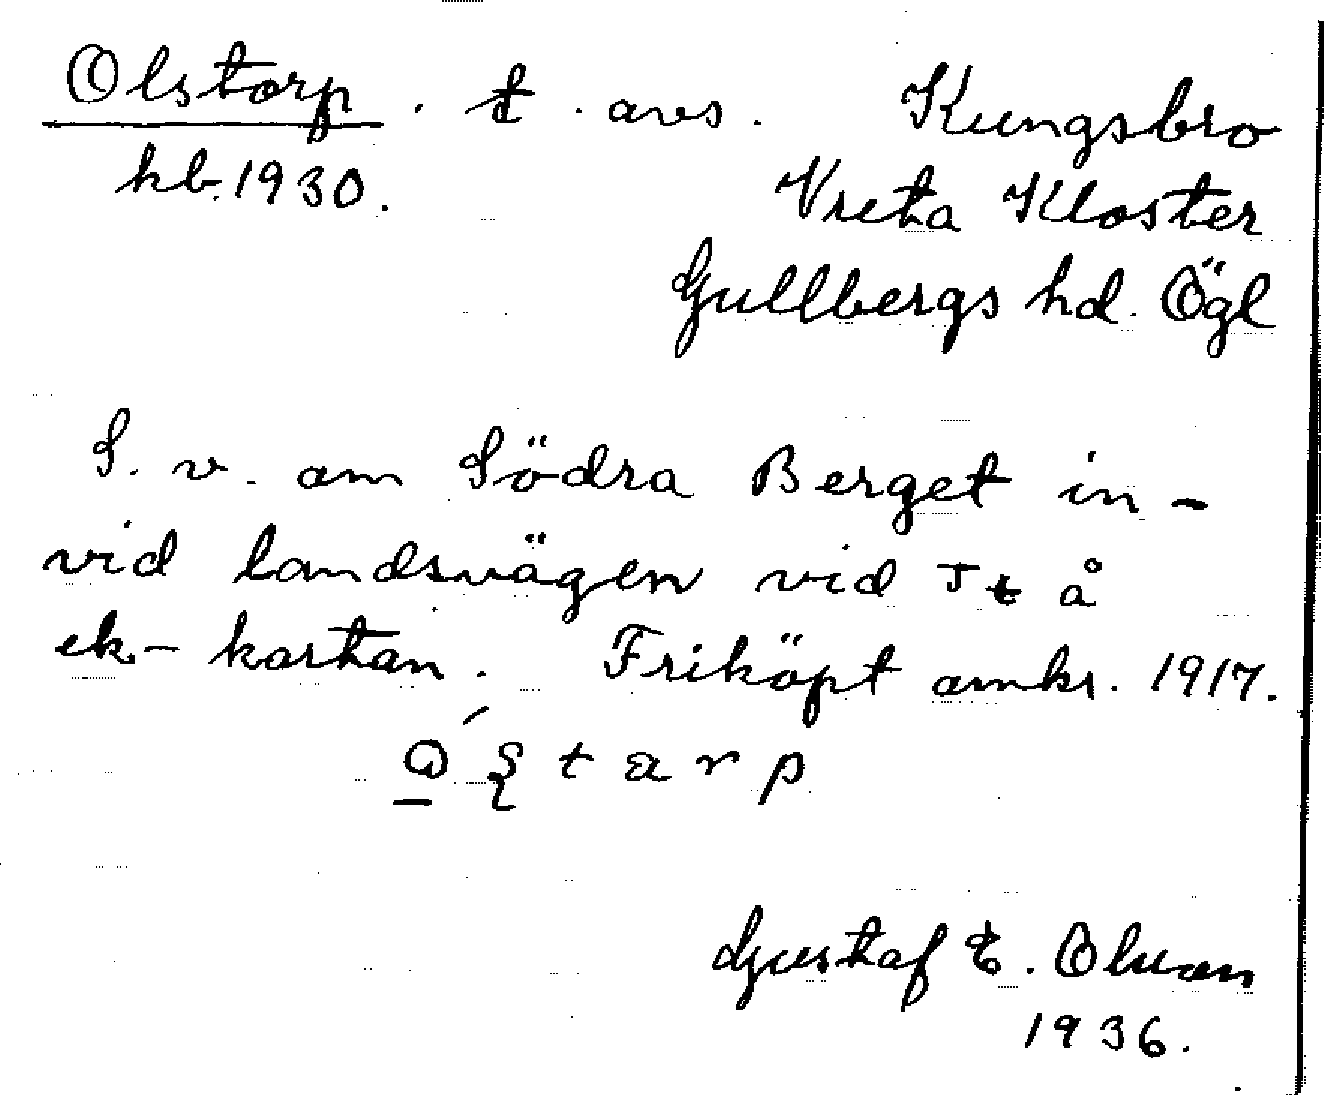 Olstorp. t. avs. Kungsbro
kb. 1930. Vreta Kloster
Gullbergs hd. Ögl
S. v. om Södra Berget in-
vid landsvägen vid Jt å
ek-kartan. Friköpt omkr. 1917.
starp
Gustaf E. Olsson
1936.